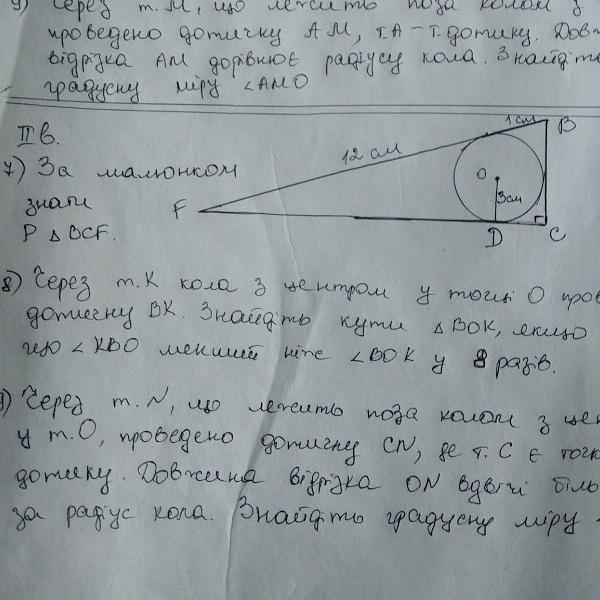 9) Через т. М, що лежить поза колом з
проведено дотичну АМ, т.А – т.дотику. Дов
відрізка АМ дорівнює радіусу кола. Знайдіть
градусну міру ∠АМО
ІІ в.
7) За малюнком
знати
P △ BCF.
F
12 см
1 см
B
O
3см
D
C
8) Через т. К кола з центром у точці О про
дотичну ВК. Знайдіть кути △ВОК, якщо
що ∠KBO менший ніж ∠BOK у 8 разів.
9) Через т. N, що лежить поза колом з це
у т.О, проведено дотичну CN, де т. С є точ
дотику. Довжина відрізка ON вдвічі біль
за радіус кола. Знайдіть градусну міру